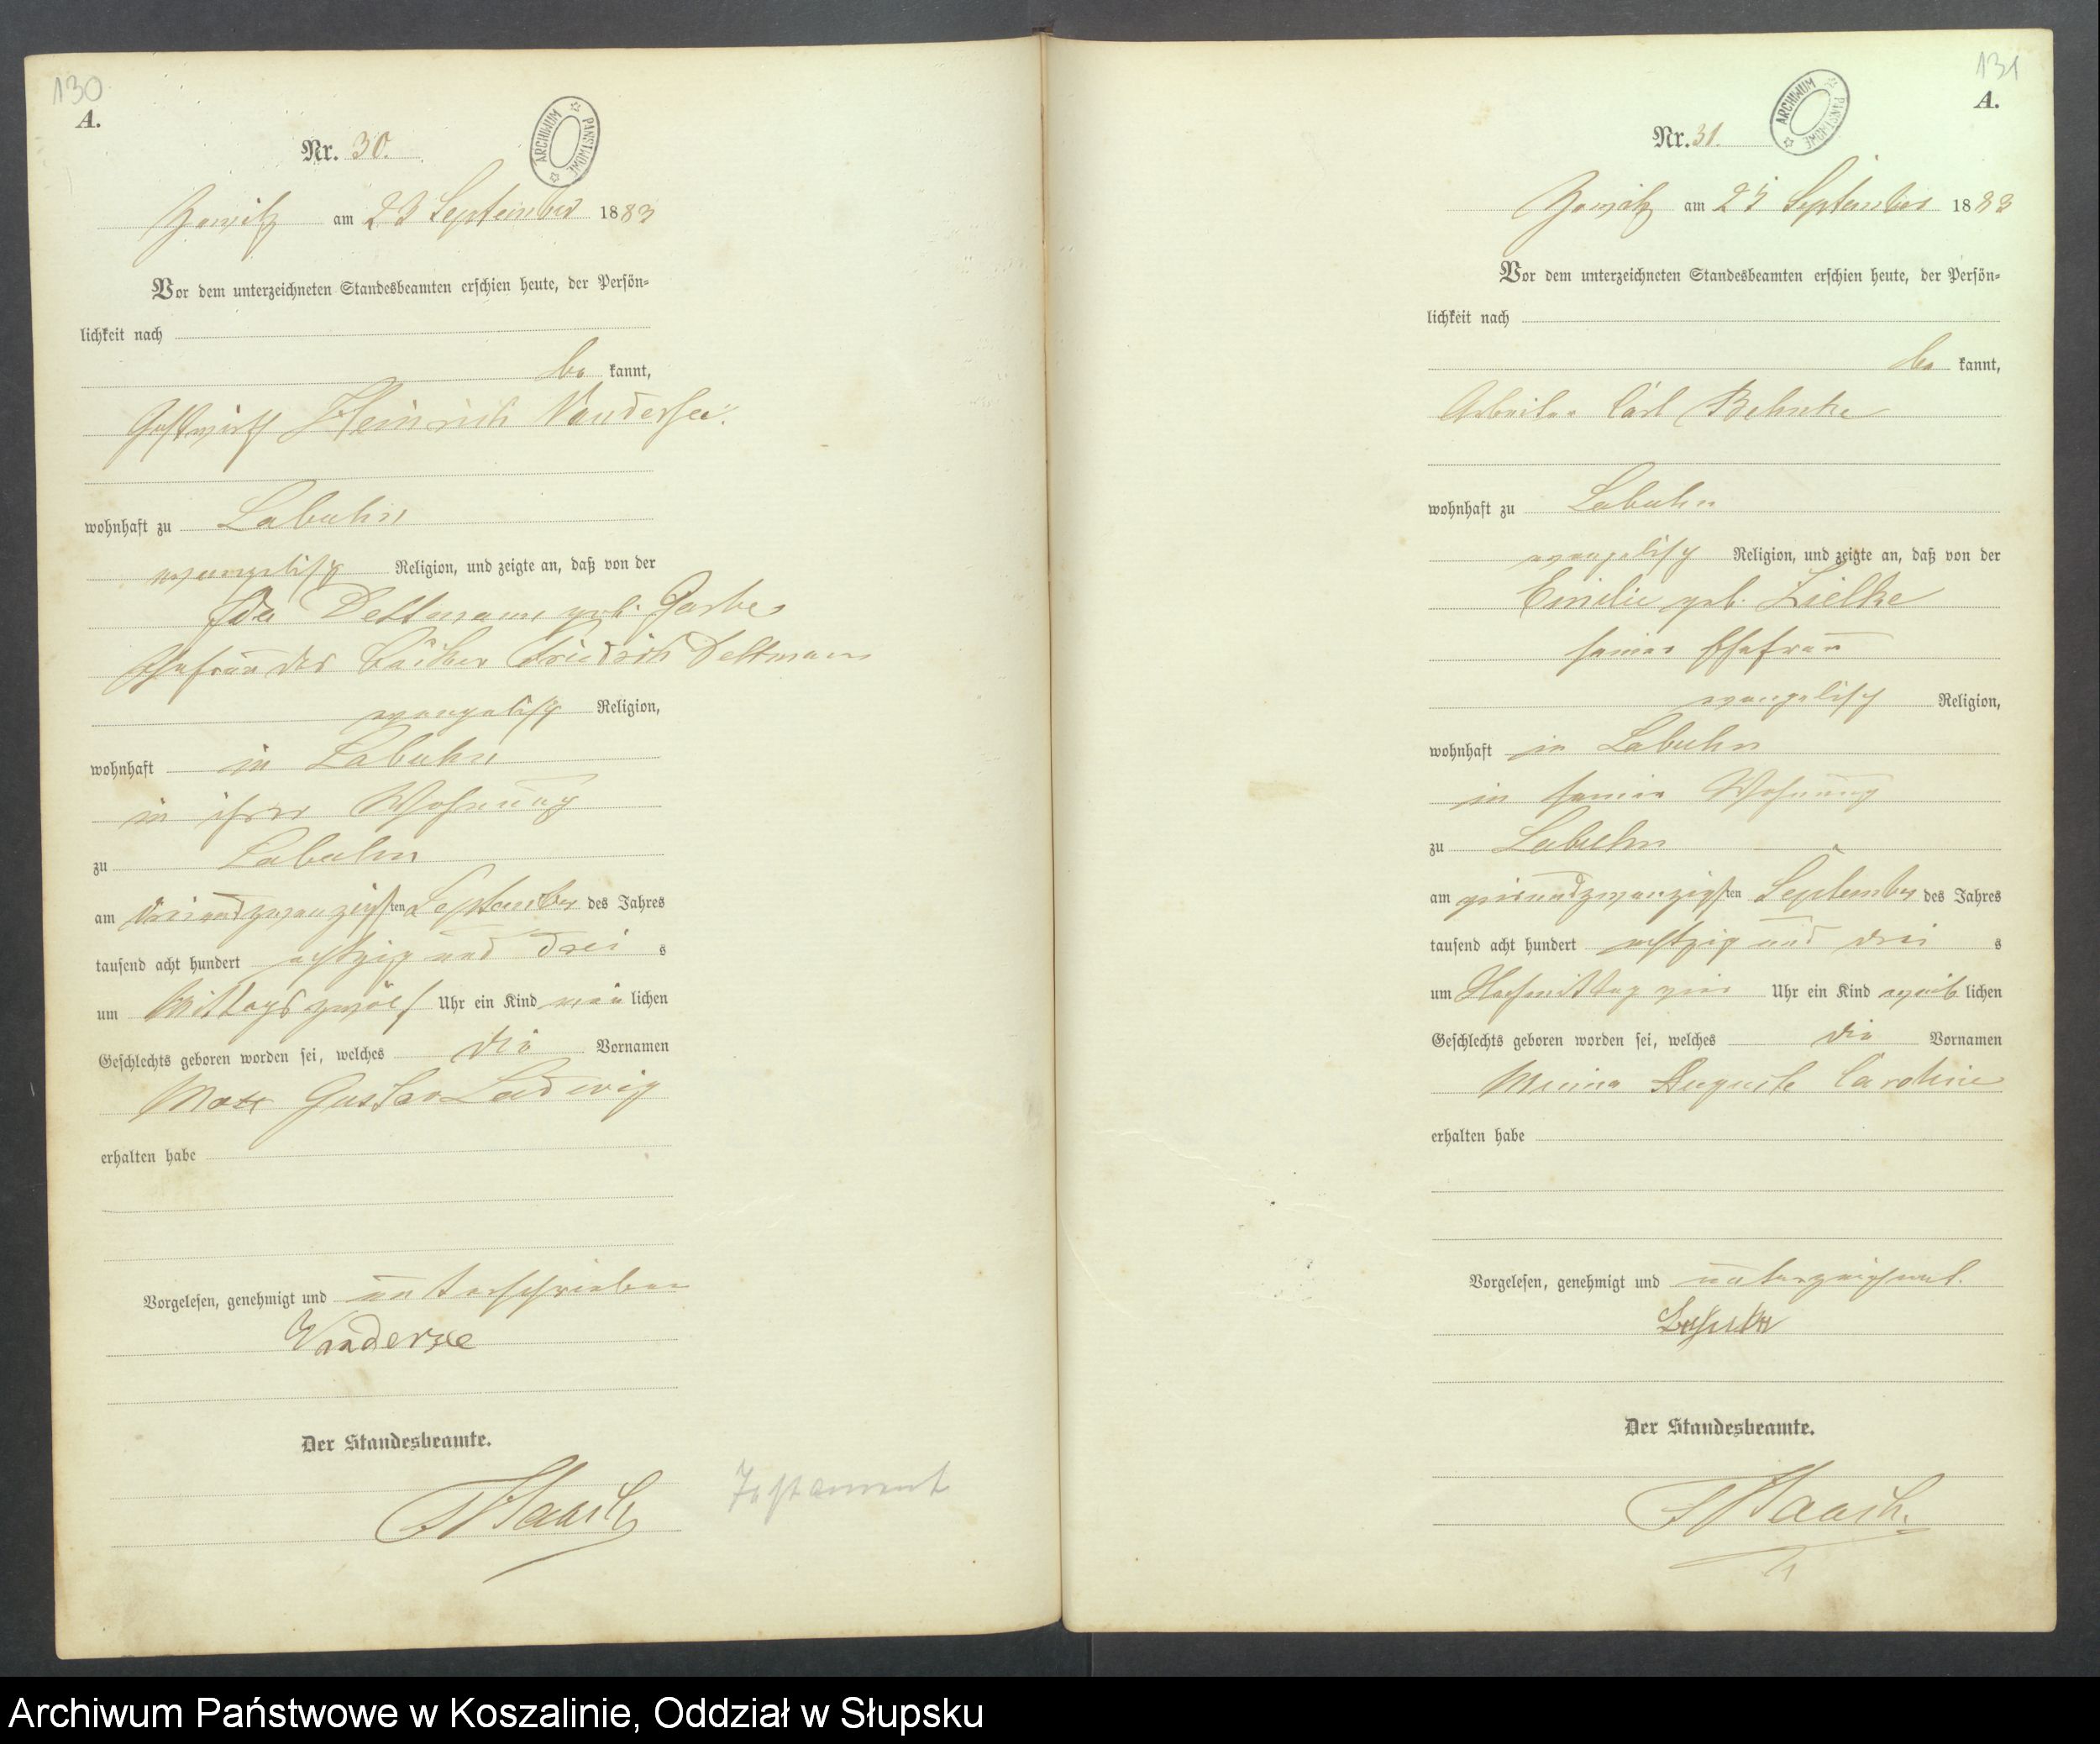 130
A.
Nr. 30.
ARCHIWUM PAŃSTWOWE
am 23 September 1883
Vor dem unterzeichneten Standesbeamten erschien heute, der Persön-
lichkeit nach
be kannt,
Gastwirth Heinrich Vandersee.
wohnhaft zu Labuhn
evangelisch Religion, und zeigte an, daß von der
Ida Dettmann geb. Garbe
Ehefrau des Friedrich Dettmann
evangelisch Religion,
wohnhaft in Labuhn
in ihrer Wohnung
zu Labuhn
am dreiundzwanzigsten September des Jahres
tausend acht hundert achtzig und drei s
um Mittags zwölf Uhr ein Kind männlichen
Geschlechts geboren worden sei, welches die Vornamen
Max Gustav Ludwig
erhalten habe
Vorgelesen, genehmigt und unterschrieben
Vandersee
Der Standesbeamte.
Testament
131
A.
Nr. 31.
ARCHIWUM PAŃSTWOWE
am 25 September 1883
Vor dem unterzeichneten Standesbeamten erschien heute, der Persön-
lichkeit nach
be kannt,
Arbeiter Carl Behnke
wohnhaft zu Labuhn
evangelisch Religion, und zeigte an, daß von der
Emilie geb. Zielke
seiner Ehefrau
evangelisch Religion,
wohnhaft in Labuhn
in seiner Wohnung
zu Labuhn
am September des Jahres
tausend acht hundert achtzig und drei s
um Nachmittag Uhr ein Kind weiblichen
Geschlechts geboren worden sei, welches die Vornamen
Auguste Caroline
erhalten habe
Vorgelesen, genehmigt und unterzeichnet.
Behnke
Der Standesbeamte.
Archiwum Państwowe w Koszalinie, Oddział w Słupsku